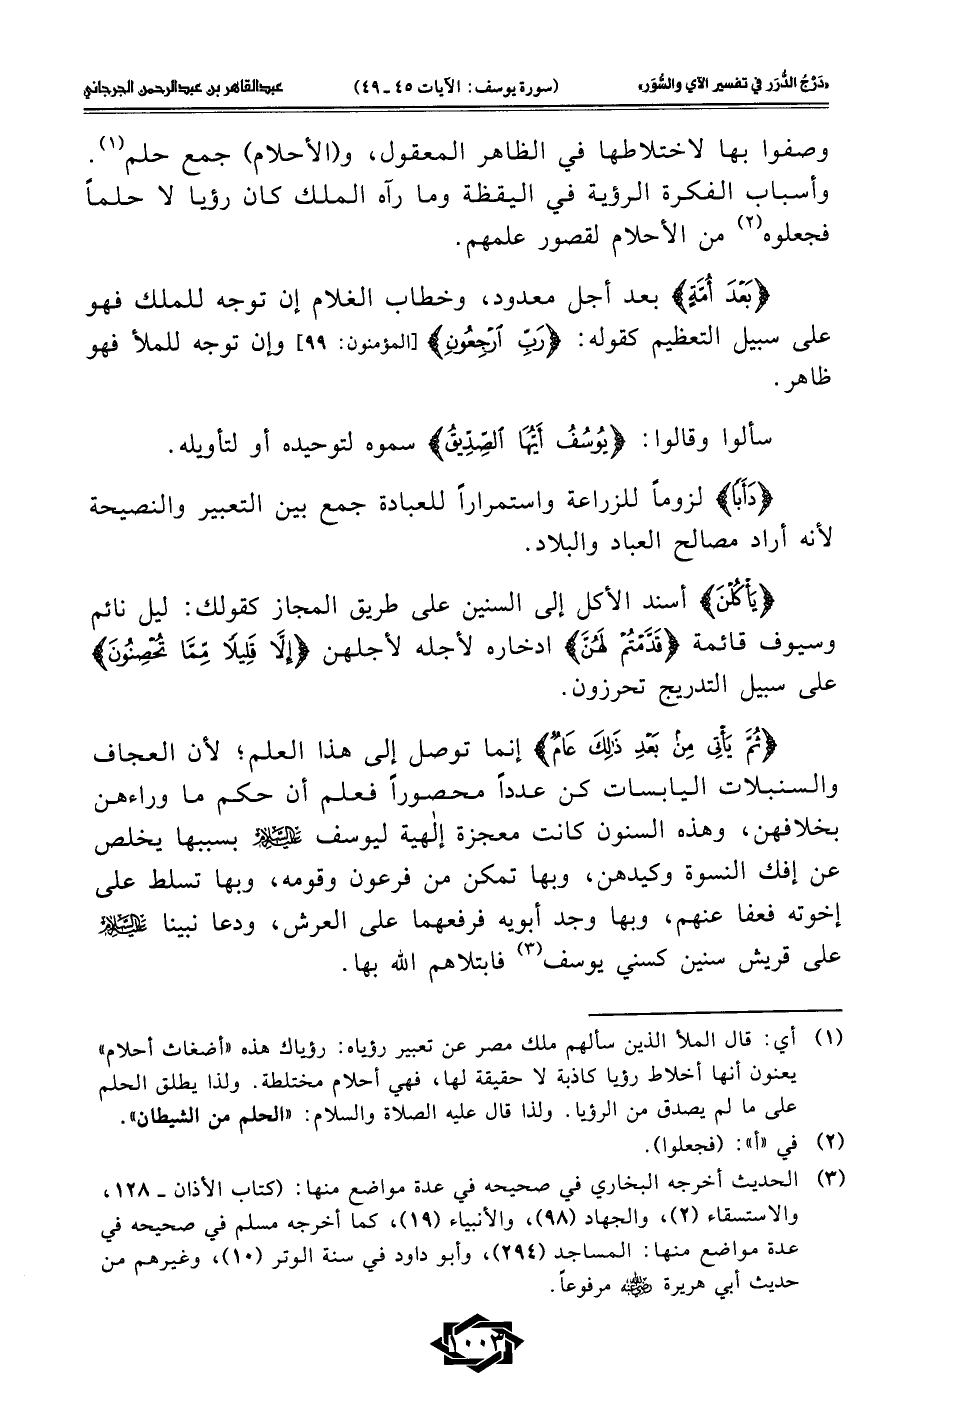 «دَرْجُ الدُّرَر في تفسير الآي والسُّوَر» (سورة يوسف: الآيات ٤٥ ـ ٤٩) عبدالقاهر بن عبدالرحمن الجرجاني
وصفوا بها لاختلاطها في الظاهر المعقول، و(الأحلام) جمع حلم(١).
وأسباب الفكرة الرؤية في اليقظة وما رآه الملك كان رؤيا لا حلماً
فجعلوه(٢) من الأحلام لقصور علمهم.
﴿بَعْدَ أُمَّةٍ﴾ بعد أجل معدود، وخطاب الغلام إن توجه للملك فهو
على سبيل التعظيم كقوله: ﴿رَبِّ ٱرْجِعُونِ﴾ [المؤمنون: ٩٩] وإن توجه للملأ فهو
ظاهر.
سألوا وقالوا: ﴿يُوسُفُ أَيُّهَا ٱلصِّدِّيقُ﴾ سموه لتوحيده أو لتأويله.
﴿دَأَبًا﴾ لزوماً للزراعة واستمراراً للعبادة جمع بين التعبير والنصيحة
لأنه أراد مصالح العباد والبلاد.
﴿يَأْكُلْنَ﴾ أسند الأكل إلى السنين على طريق المجاز كقولك: ليل نائم
وسيوف قائمة ﴿قَدَّمْتُمْ لَهُنَّ﴾ ادخاره لأجله لأجلهن ﴿إِلَّا قَلِيلًا مِّمَّا تُحْصِنُونَ﴾
على سبيل التدريج تحرزون.
﴿ثُمَّ يَأْتِي مِنْ بَعْدِ ذَٰلِكَ عَامٌ﴾ إنما توصل إلى هذا العلم؛ لأن العجاف
والسنبلات اليابسات كن عدداً محصوراً فعلم أن حكم ما وراءهن
بخلافهن، وهذه السنون كانت معجزة إلٰهية ليوسف عليه السلام بسببها يخلص
عن إفك النسوة وكيدهن، وبها تمكن من فرعون وقومه، وبها تسلط على
إخوته فعفا عنهم، وبها وجد أبويه فرفعهما على العرش، ودعا نبينا عليه السلام
على قريش سنين كسني يوسف(٣) فابتلاهم الله بها.
(١) أي: قال الملأ الذين سألهم ملك مصر عن تعبير رؤياه: رؤياك هذه «أضغاث أحلام»
يعنون أنها أخلاط رؤيا كاذبة لا حقيقة لها، فهي أحلام مختلطة. ولذا يطلق الحلم
على ما لم يصدق من الرؤيا. ولذا قال عليه الصلاة والسلام: «الحلم من الشيطان».
(٢) في «أ»: (فجعلوا).
(٣) الحديث أخرجه البخاري في صحيحه في عدة مواضع منها: (كتاب الأذان ـ ١٢٨،
والاستسقاء (٢)، والجهاد (٩٨)، والأنبياء (١٩)، كما أخرجه مسلم في صحيحه في
عدة مواضع منها: المساجد (٢٩٤)، وأبو داود في سنة الوتر (١٠)، وغيرهم من
حديث أبي هريرة رضي الله عنه مرفوعاً.
١٠٠٣